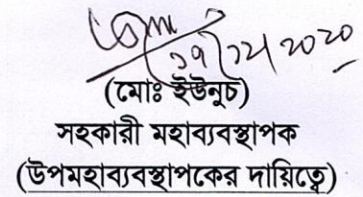 ১৭/১২/২০২০
(মোঃ ইউনুচ)
সহকারী মহাব্যবস্থাপক
(উপমহাব্যবস্থাপকের দায়িত্বে)